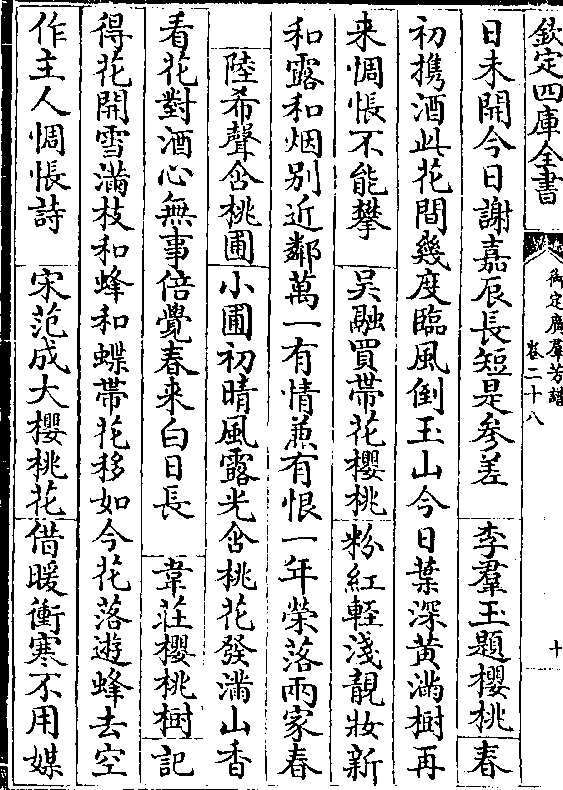 欽定四庫全書
御定廣羣芳譜
卷二十八
十
日未開今日謝嘉辰長短是參差 李羣玉題櫻桃 春
初携酒此花間幾度臨風倒玉山今日葉深黄滿樹再
来惆悵不能攀 吴融買帶花櫻桃 粉紅輕淺靚妝新
和露和烟别近鄰萬一有情兼有恨一年榮落兩家春
陸希聲含桃圃 小圃初晴風露光含桃花發滿山香
看花對酒心無事倍覺春来白日長 韋莊櫻桃樹 記
得花開雪滿枝和蜂和蝶帶花移如今花落遊蜂去空
作主人惆悵詩 宋范成大櫻桃花 借暖衝寒不用媒